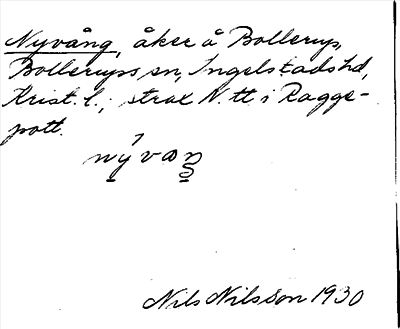 Nyvång, åker å Bollerup,
Bollerups sn, Ingelstads hd,
Krist. l.; strax N. tt i Ragge-
pott.
Nils Nilsson 1930